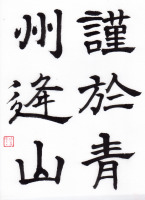 謹於青
州逢山